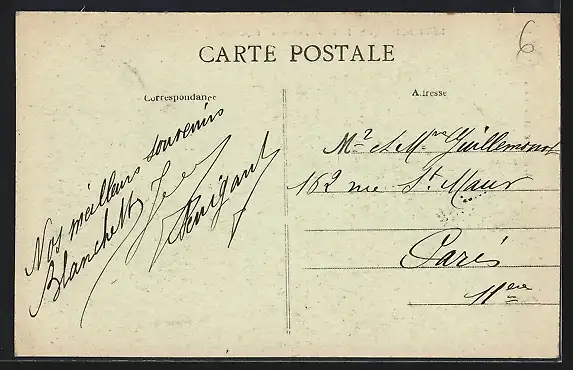 CARTE POSTALE
6
Correspondance
Adresse
Nos meilleurs souvenirs
Blanchett
Mr et Mme Guillemenot
162 rue St. Maur
Paris
11ème